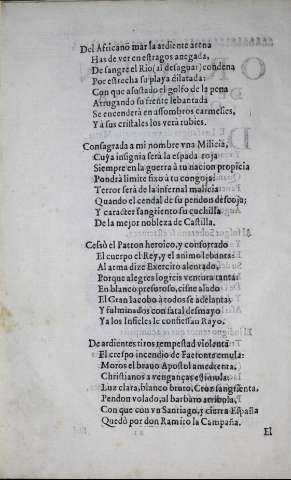 Del Africano mar la ardiente arena
Has de ver en estragos anegada,
De sangre el Rio (al desaguar) condena
Por estrecha su playa dilatada:
Con que asustado el golfo de la pena
Arrugando su frente lebantada
Se encenderà en assombros carmesies,
Y à sus cristales los verà rubies.
Consagrada a mi nombre vna Milicia,
Cuya insignia serà la espada roja
Siempre en la guerra à tu nacion propicia
Pondrà limite fixo a tu congoja:
Terror serà de la infernal malicia
Quando el cendal de su pendon descoja;
Y caracter sangriento su cuchilla
De la mejor nobleza de Castilla.
Cessò el Patron heroico, y confortado
El cuerpo el Rey, y el animo lebanta:
Al arma dize Exercito alentado,
Porque alegres logreis ventura tanta:
En blanco presuroso, cisne alado
El Gran Iacobo à todos se adelanta;
Y fulminados con fatal desmayo
Ya los Infieles le confiessan Rayo.
De ardientes tiros tempestad violenta
El crespo incendio de Faetonte emula:
Moros el brauo Apostol amedrenta,
Christianos a venganças estimula:
Luz clara, blanco bruto, Cruz sangrienta,
Pendon volado, al barbaro
Con que con vn Santiago, y cierra España
Quedò por don Ramiro la Campaña.
El